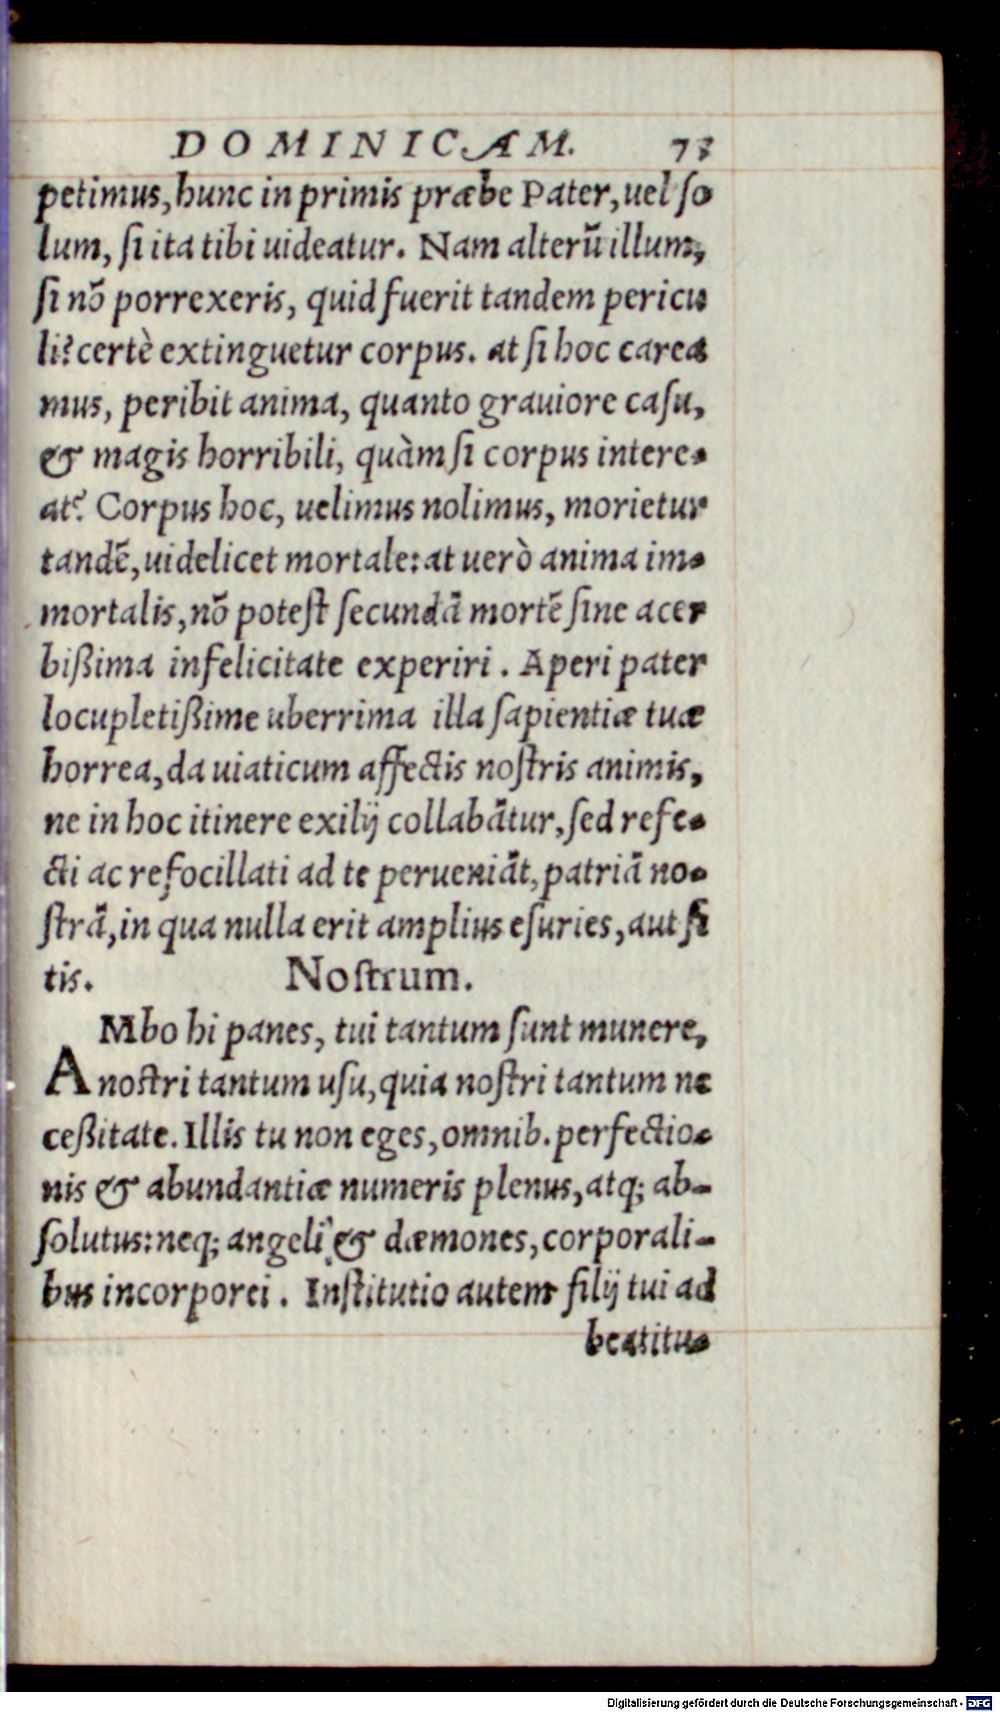 DOMINICAM. 73
petimus, hunc in primis præbe Pater, uel so
lum, si ita tibi uideatur. Nam alterũ illum,
si nõ porrexeris, quid fuerit tandem pericu
li? certè extinguetur corpus. at si hoc carea
mus, peribit anima, quanto grauiore casu,
& magis horribili, quàm si corpus intere-
at? Corpus hoc, uelimus nolimus, morietur
tandẽ, uidelicet mortale: at uerò anima im-
mortalis, nõ potest secundã mortẽ sine acer
bißima infelicitate experiri. Aperi pater
locupletißime uberrima illa sapientiæ tuæ
horrea, da uiaticum affectis nostris animis,
ne in hoc itinere exilij collabãtur, sed refe-
cti ac refocillati ad te perueniãt, patriã no-
strã, in qua nulla erit amplius esuries, aut si
tis. Nostrum.
AMbo hi panes, tui tantum sunt munere,
nostri tantum usu, quia nostri tantum ne
ceßitate. Illis tu non eges, omnib. perfectio-
nis & abundantiæ numeris plenus, atq; ab-
solutus: neq; angeli & dæmones, corporali-
bus incorporei. Institutio autem filij tui ad
beatitu-
Digitalisierung gefördert durch die Deutsche Forschungsgemeinschaft - DFG